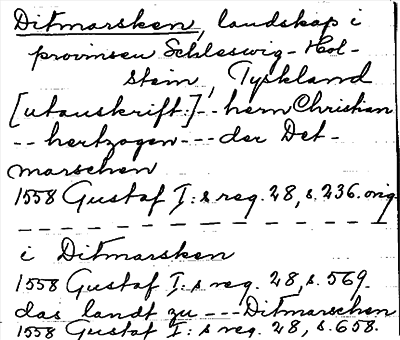 Ditmarsken, landskap i
provinsen Schleswig-Hol-
stein, Tyskland
[utanskrift:] - - hern Christian
- - hertzogen - - - der Det-
marschen
1558 Gustaf I:s reg. 28, s. 236. orig.
i Ditmarsken
1558 Gustaf I:s reg. 28, s. 569.
das landt zu - - - Ditmarschen
1558 Gustaf I:s reg. 28, s. 658.